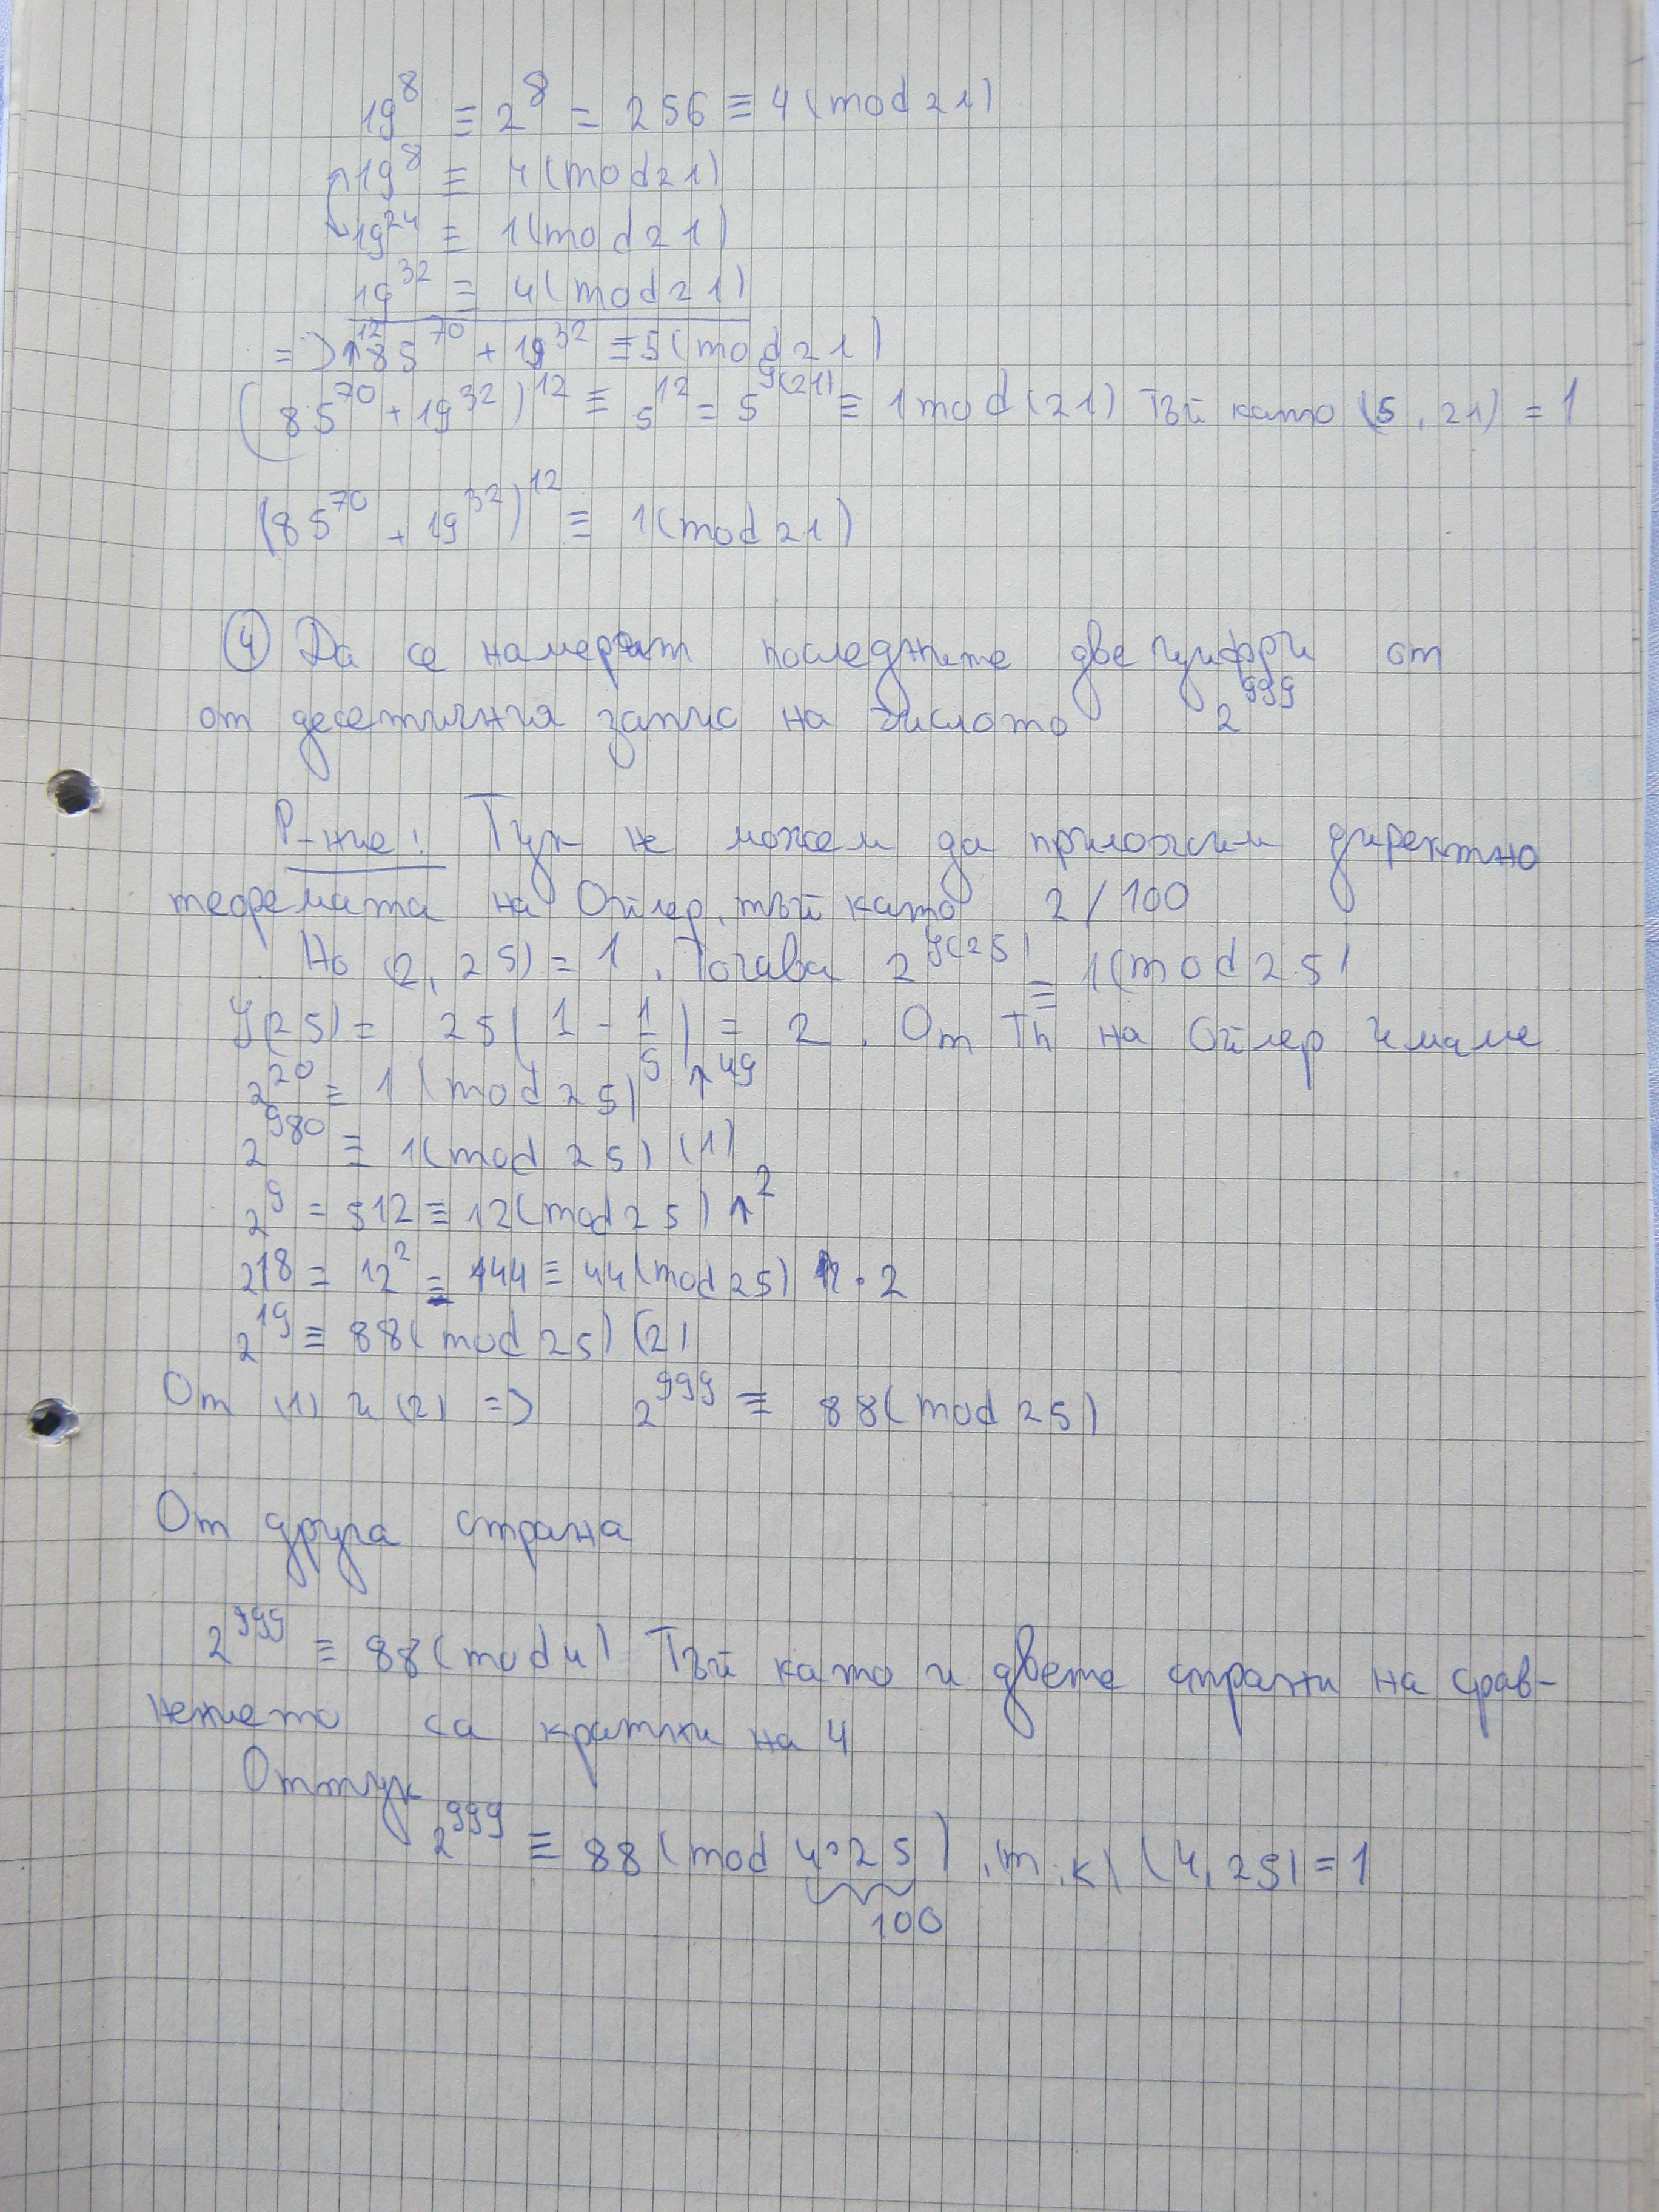 19⁸ ≡ 2⁸ = 256 ≡ 4 (mod 21)
19⁸ ≡ 4 (mod 21)
19²⁴ ≡ 1 (mod 21)
19³² ≡ 4 (mod 21)
=> 85⁷⁰ + 19³² ≡ 5 (mod 21) ↑¹²
(85⁷⁰ + 19³²)¹² ≡ 5¹² = 5^φ(21) ≡ 1 mod (21) Тъй като (5, 21) = 1
(85⁷⁰ + 19³²)¹² ≡ 1 (mod 21)
④ Да се намерят последните две цифри от
от десетичния запис на числото 2⁹⁹⁹
Р-ние: Тук не можем да приложим директно
теоремата на Ойлер, тъй като 2 / 100
Но (2, 25) = 1. Тогава 2^φ(25) ≡ 1 (mod 25)
φ(25) = 25 (1 - 1/5) = 2. От Th на Ойлер имаме
2²⁰ ≡ 1 (mod 25) ↑⁴⁹
2⁹⁸⁰ ≡ 1 (mod 25) (1)
2⁹ = 512 ≡ 12 (mod 25) ↑²
2¹⁸ = 12² = 144 ≡ 44 (mod 25) · 2
2¹⁹ ≡ 88 (mod 25) (2)
От (1) и (2) => 2⁹⁹⁹ ≡ 88 (mod 25)
От друга страна
2⁹⁹⁹ ≡ 88 (mod 4) Тъй като и двете страни на срав-
нението са кратни на 4
Оттук
2⁹⁹⁹ ≡ 88 (mod 4·25), (т.к) (4, 25) = 1
100